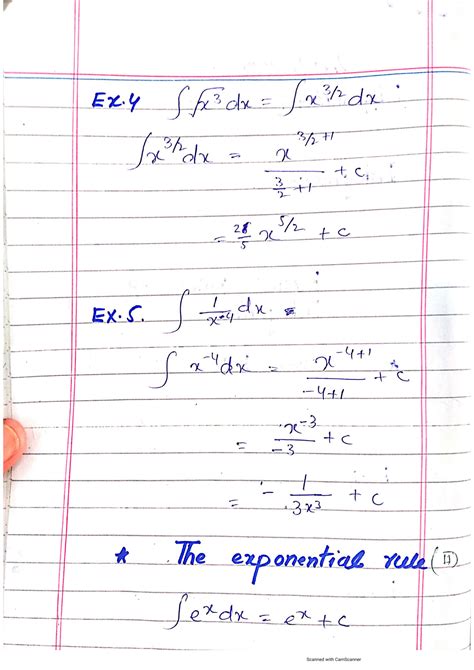 Ex.4 ∫√x³ dx = ∫x^{3/2} dx
∫x^{3/2} dx = x^{3/2+1} / (3/2 + 1) + c
= 2/5 x^{5/2} + c
Ex.5. ∫ 1/x⁴ dx =
∫ x^{-4} dx = x^{-4+1} / (-4+1) + c
= x^{-3} / -3 + c
= - 1/3x³ + c
* The exponential rule (II)
∫eˣdx = eˣ + c
Scanned with CamScanner